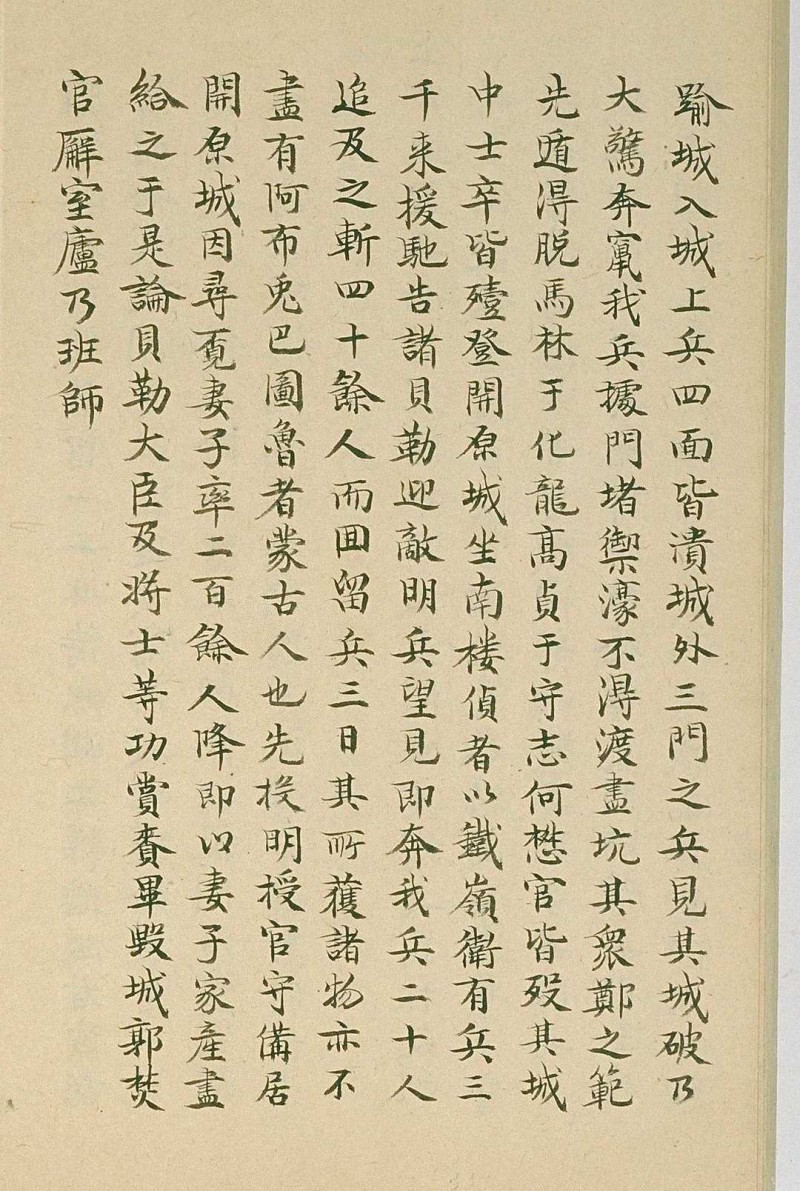 踰城入城上兵四面皆潰城外三門之兵見其城破乃
大驚奔竄我兵據門堵禦濠不得渡盡坑其衆鄭之範
先遁得脱馬林于化龍高貞于守志何懋官皆殁其城
中士卒皆殪登開原城坐南楼偵者以鐵嶺衛有兵三
千来援馳告諸貝勒迎敵明兵望見即奔我兵二十人
追及之斬四十餘人而囬留兵三日其所獲諸物亦不
盡有阿布兎巴圖魯者蒙古人也先投明授官守備居
開原城因尋覔妻子率二百餘人降即以妻子家產盡
給之于是論貝勒大臣及将士等功賞賚畢毀城郭焚
官廨室廬乃班師